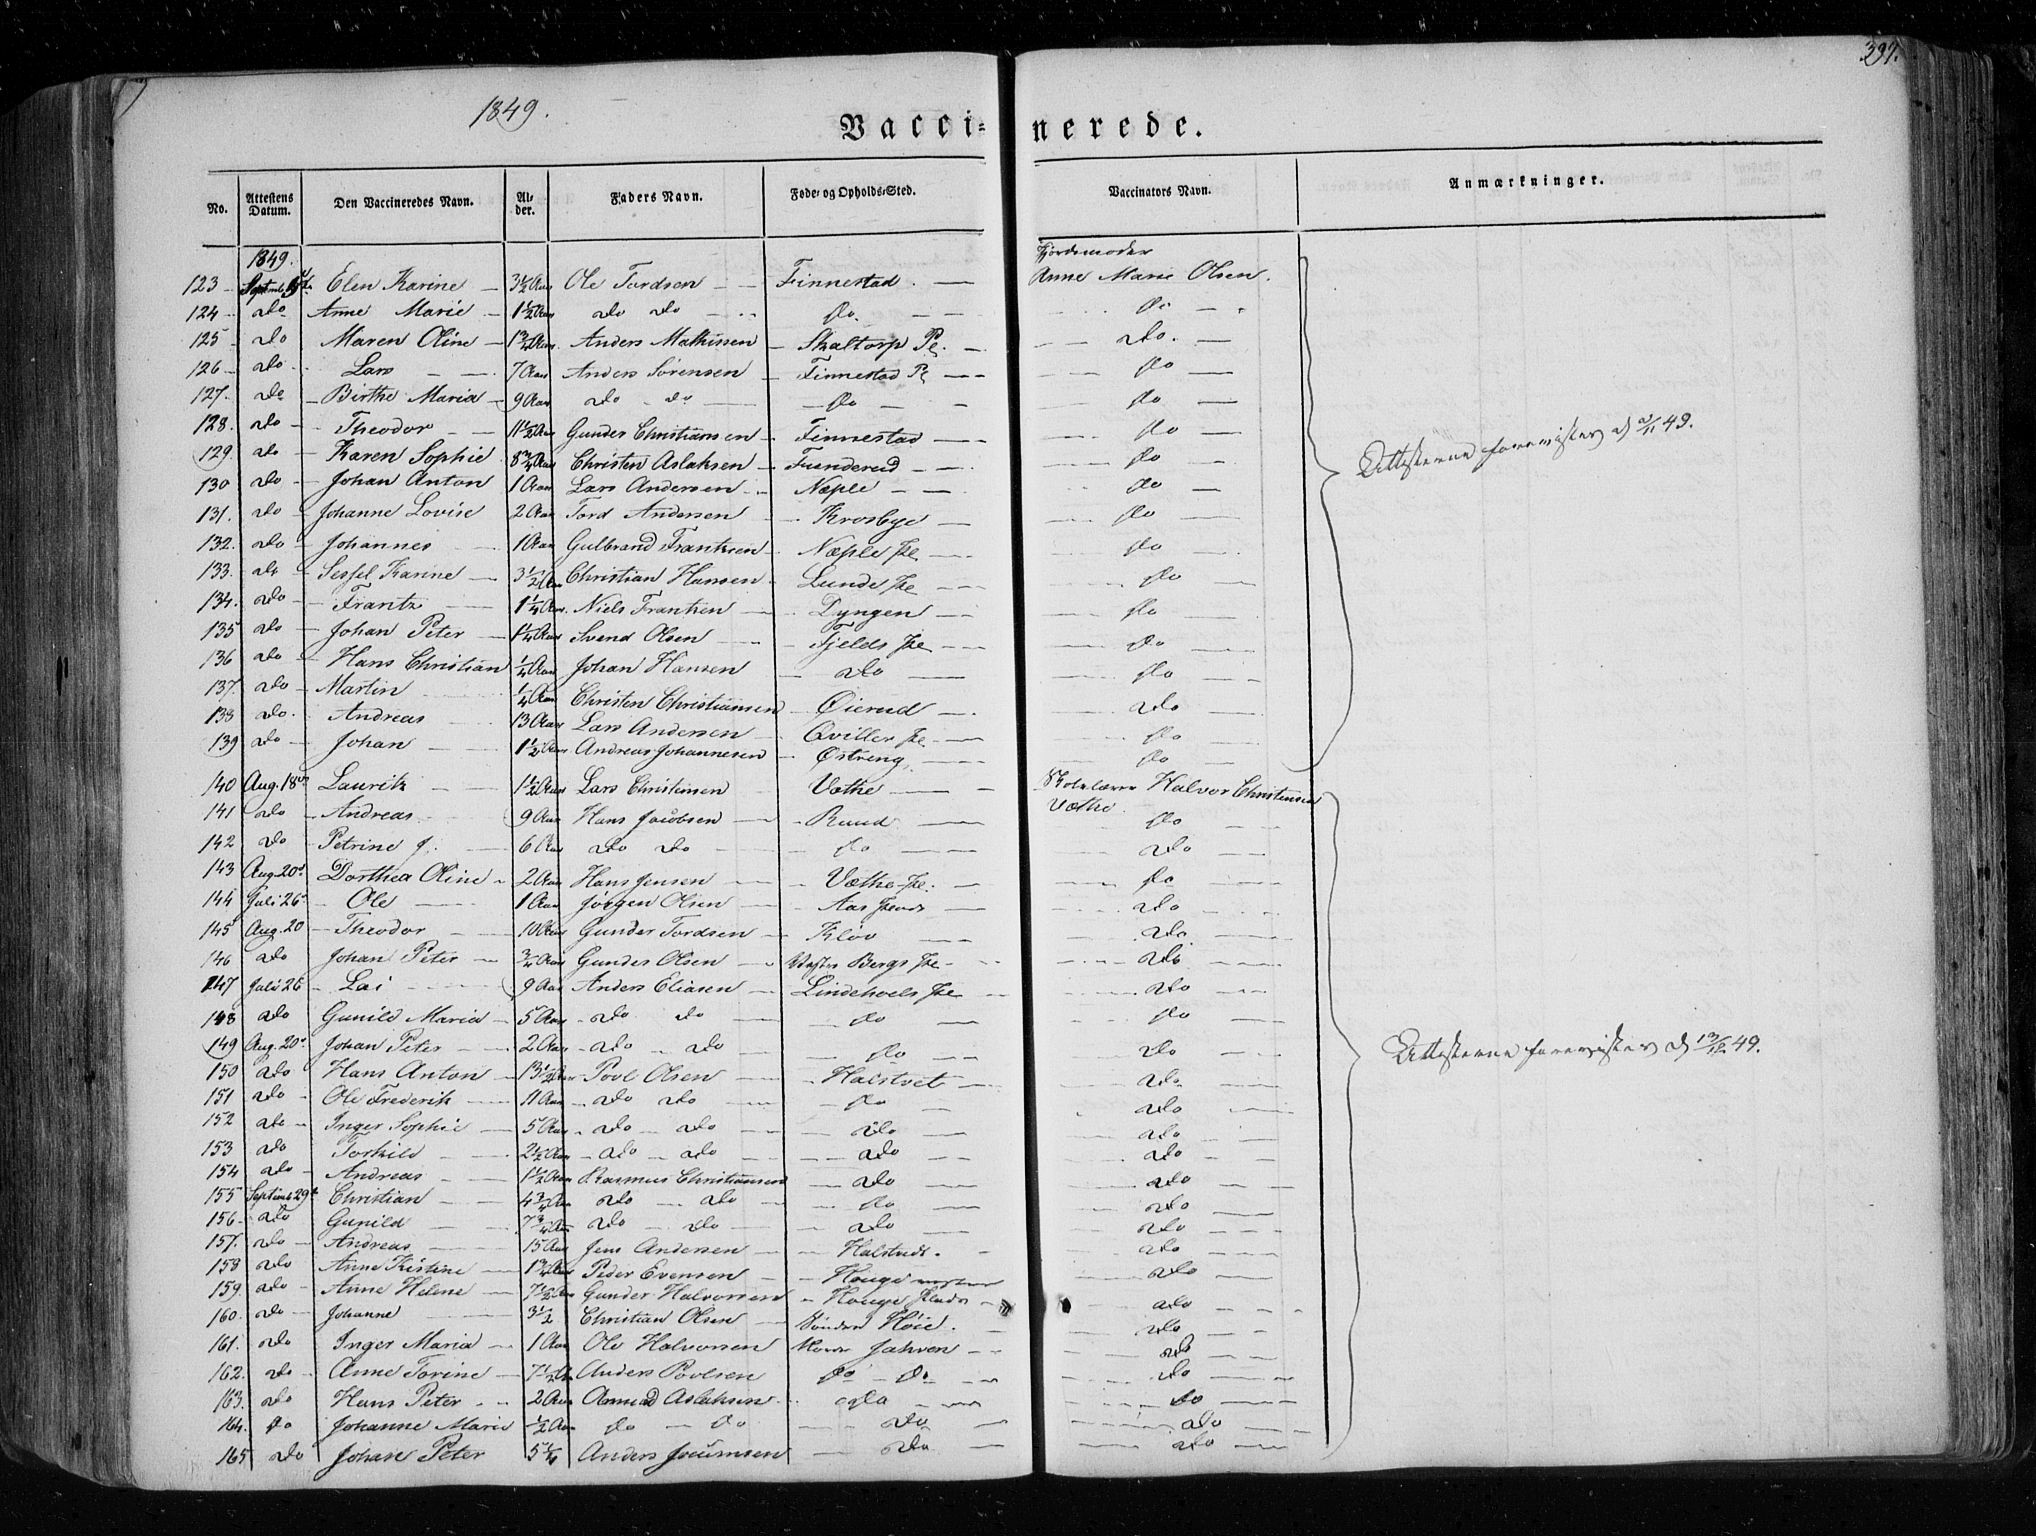 397.
1849.
Vacci= nerede.
No. Attestens Datum. Den Vaccineredes Navn. Al- der. Faders Navn. Føde- og Opholds-Sted. Vaccinators Navn. Anmærkninger.
1849. Jordemoder
123 Elen Karine 3½ Aar Ole Tordsen Finnestad Anne Marie Olsen.
124 do Anne Marie 1½ Aar do do do do
125 do Maren Oline 1¾ Aar Anders Mathissen Skaltorp Pl. do
126 do Lars 7 Aar Anders Sørensen Finnestad Pl do
127. do Birthe Maria 9 Aar do do do do
128. do Theodor 11½ Aar Gunder Christiansen Finnestad do
129. do Karen Sophie 8¾ Aar Christen Aslaksen do
Attesterne foreviste d 49.
130 do Johan Anton 1 Aar Lars Andersen Næple do
131. do Johanne Lovise 2 Aar Tord Andersen Krosbye do
132. do Johannes 1 Aar Gulbrand Frantzen Næple do
133. do Sessel Karine 3½ Aar Christian Hansen Lunde do
134. do Frantz 1¼ Aar Niels Frantzen Dyngen do
135 do Johan Peter 1¼ Aar Svend Olsen Fjelds do
136 do Hans Christian ¼ Aar Johan Hansen do do
137. do Martin ¼ Aar Christen Christiansen Øierud do
138 do Andreas 13 Aar Lars Andersen Qviller do
139 do Johan 1½ Aar Andreas Johannesen Østreng do
140 Aug. 18 Lauritz 1½ Aar Lars Christensen Vethe Skolelærer Halvor Christensen
Vethe
141 do Andreas 9 Aar Hans Jacobsen Ruud do
142 do Petrine 6 Aar do do do do
143 Aug. 20 Dorthea Oline 2 Aar Hans Jensen Vethe do
144 Juli 26 Ole 1 Aar Jørgen Olsen Aas do
145 Aug. 20 Theodor 10 Aar Gunder Tordsen Kløv do
146 do Johan Peter ¾ Aar Gunder Olsen Bergs do
147 Juli 26 Lai 9 Aar Anders Eliasen Lindehoels do
148 do Gunild Maria 5 Aar do do do do
149 Aug. 20 Johan Peter 2 Aar do do do do
Attesterne foreviste d 13/12 49.
150 do Hans Anton 13½ Aar Povl Olsen Halstvet do
151 do Ole Frederik 11 Aar do do do do
152 do Inger Sophie 5 Aar do do do do
153 do Torkild 2½ Aar do do do do
154 do Andreas 1½ Aar Rasmus Christiansen do do
155 Septemb 29 Christian 4¾ Aar do do do do
156 do Gunild 7¾ Aar do do do do
157. do Andreas 15 Aar Jens Andersen do
158 do Anne Kistine 1¾ Aar Peder Evensen Houge do
159 do Anne Helene 7½ Aar Gunder Halvorsen Houge do
160. do Johanne 3½ Christian Olsen Høie. do
161. do Inger Maria 1 Aar Ole Halvorsen Jahren do
162. do Anne Torine 7½ Anders Povlsen do do do
163. do Hans Peter 2 Aar Amund Aslaksen do do
164. do Johanne Marie ½ Aar do do do do
165 do Johan Peter 5¼ Anders do do